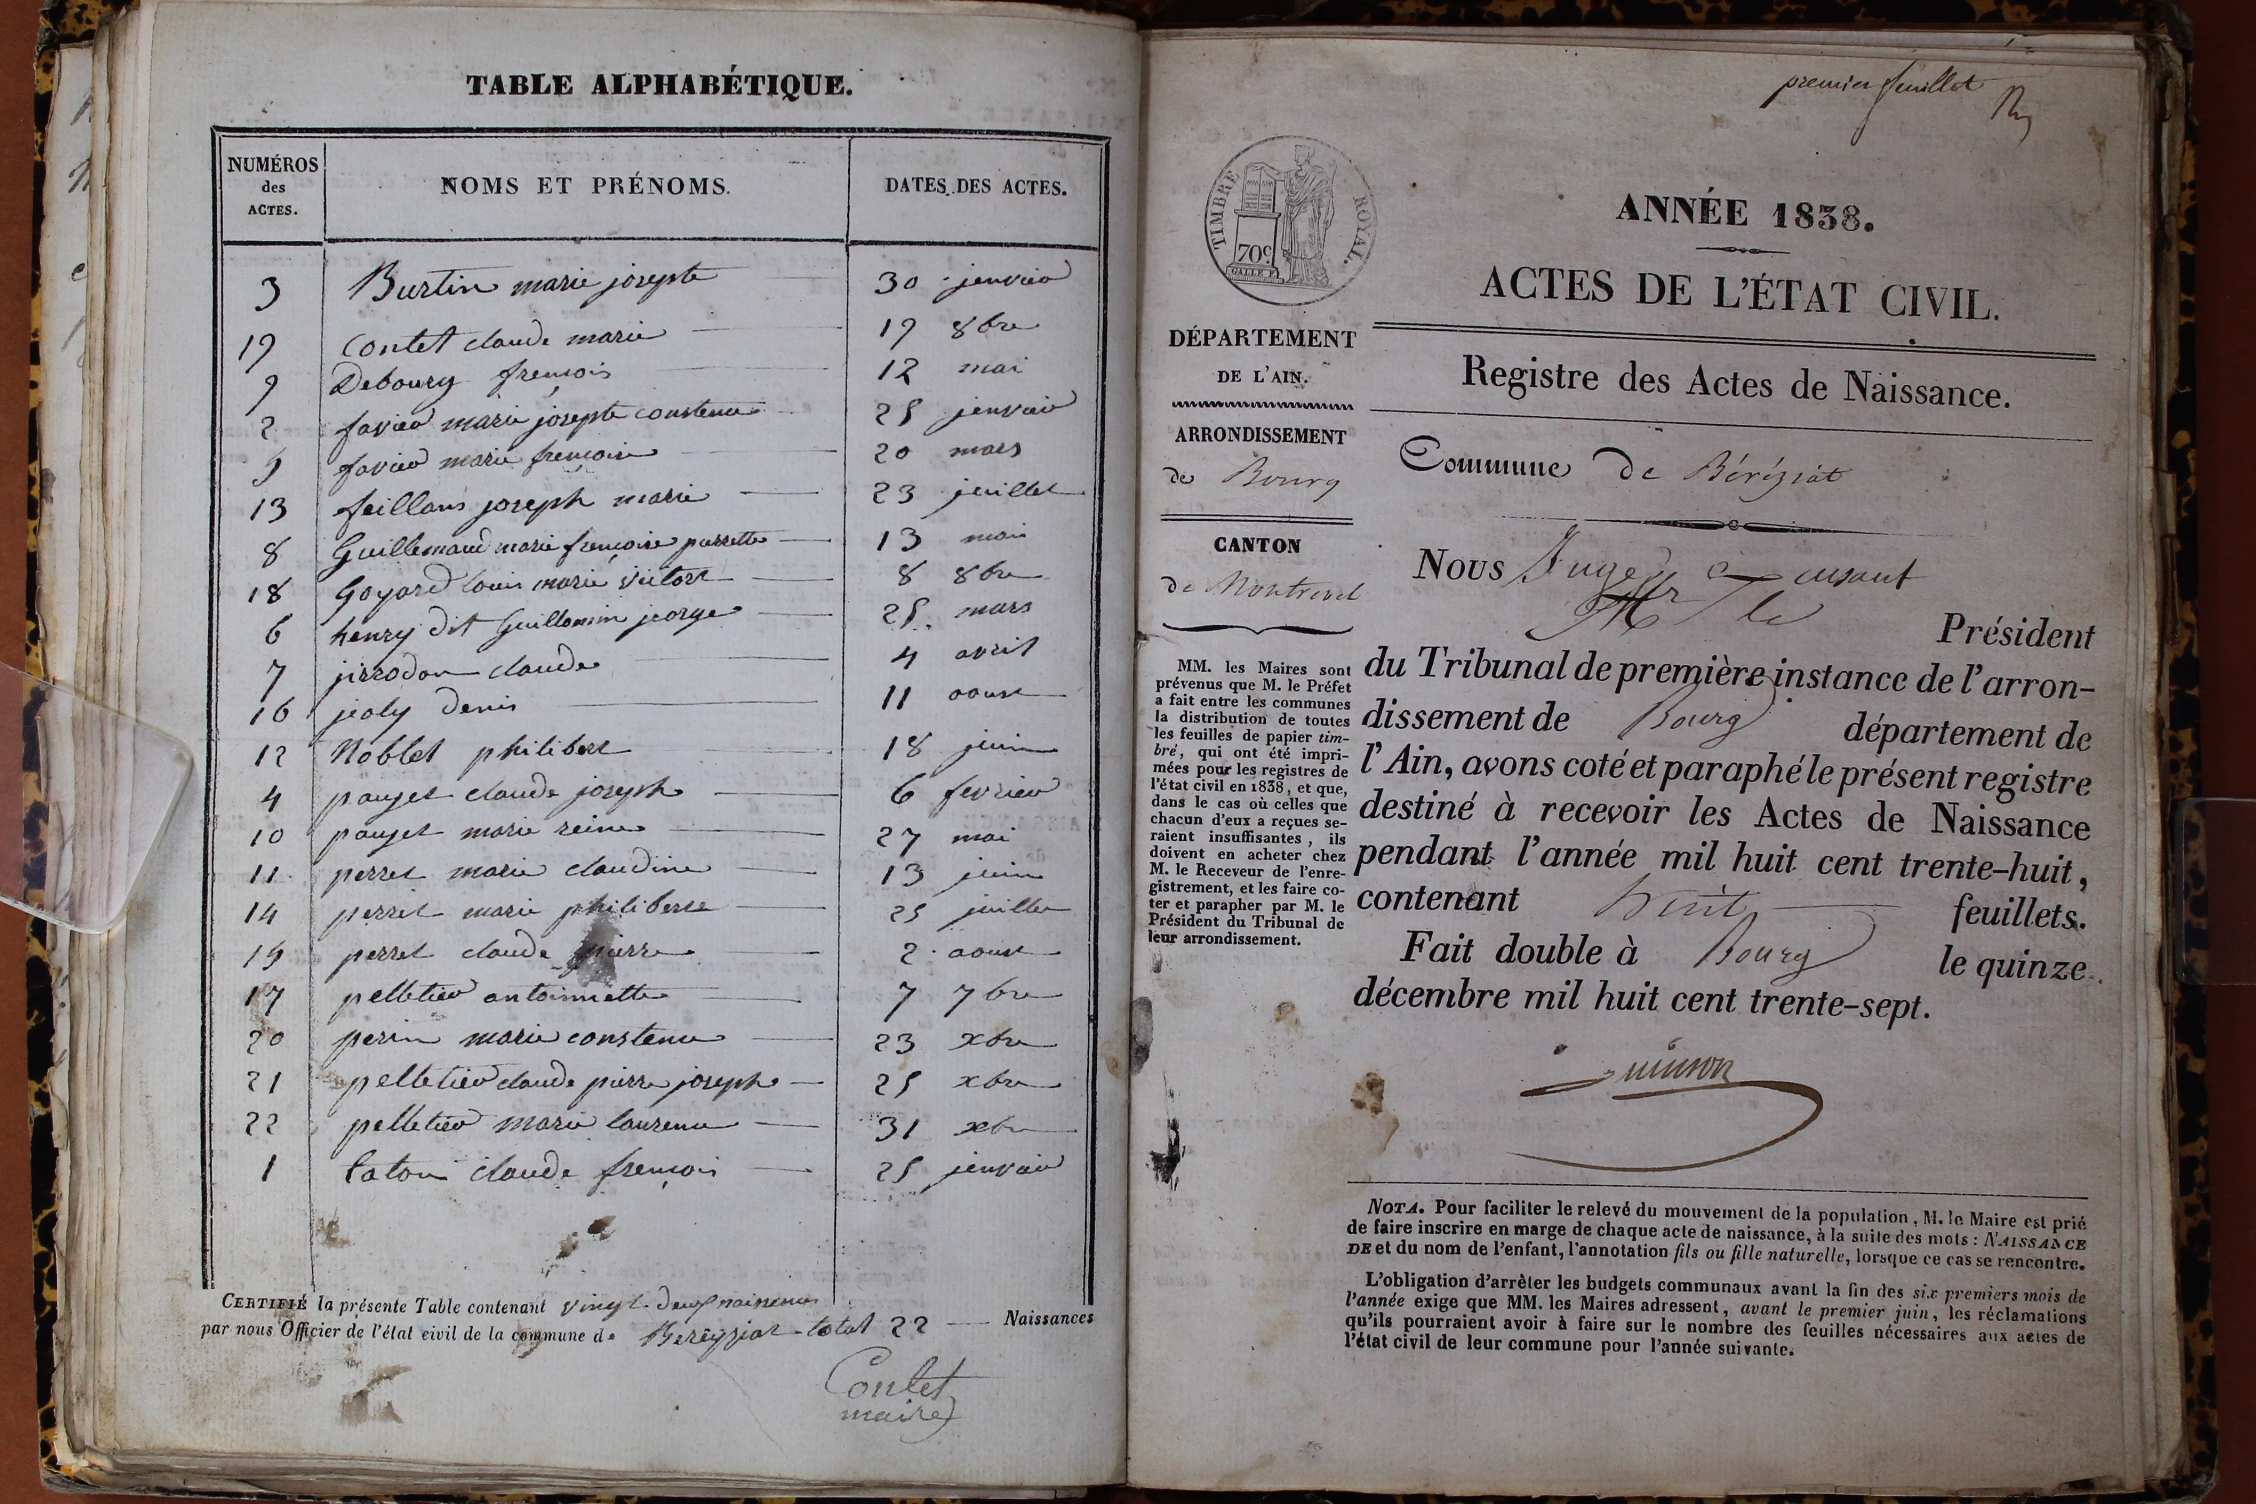 TABLE ALPHABÉTIQUE.
NUMÉROS des ACTES. NOMS ET PRÉNOMS. DATES DES ACTES.
3 Burtin marie josepte 30 jenvier
19 Contet claude marie 19 8bre
9 Debourg frençois 12 mai
2 favier marie josepte constence 25 jenvier
5 favier marie françoise 20 mars
13 feillans joseph marie 23 juillet
8 Guillemaud marie françoise pierrette 13 mai
18 Goyard louis marie victore 8 8bre
6 henry dit Guillemin jeorge 25 mars
7 jirrodon claude 4 avril
16 joly denis 11 aoust
12 Noblet philibert 18 juin
4 pauget claude joseph 6 fevrier
10 pauget marie reine 27 mai
11 perret marie claudine 13 juin
14 perret marie philiberte 25 juillet
15 perret claude pierre 2 aoust
17 pelletier antoinnette 7 7bre
20 perin marie constence 23 xbre
21 pelletier claude pierre joseph 25 xbre
22 pelletier marie laurence 31 xbre
1 taton claude frençois 25 jenvier
CERTIFIÉ la présente Table contenant vingt deux naissences Naissances
par nous Officier de l'état civil de la commune de total 22
Contet
maire
premier feuillet
TIMBRE ROYAL.
70c.
ANNÉE 1838.
ACTES DE L'ÉTAT CIVIL.
Registre des Actes de Naissance.
Commune de Béréziat
DÉPARTEMENT
DE L'AIN.
ARRONDISSEMENT
de Bourg
CANTON
de Montrevel
MM. les Maires sont
prévenus que M. le Préfet
a fait entre les communes
la distribution de toutes
les feuilles de papier tim-
bré, qui ont été impri-
mées pour les registres de
l'état civil en 1838, et que,
dans le cas où celles que
chacun d'eux a reçues se-
raient insuffisantes, ils
doivent en acheter chez
M. le Receveur de l'enre-
gistrement, et les faire co-
ter et parapher par M. le
Président du Tribunal de
leur arrondissement.
Nous Juge
Mr le
Président
du Tribunal de première instance de l'arron-
dissement de Bourg département de
l'Ain, avons coté et paraphé le présent registre
destiné à recevoir les Actes de Naissance
pendant l'année mil huit cent trente-huit,
contenant huit feuillets.
Fait double à Bourg le quinze
décembre mil huit cent trente-sept.
NOTA. Pour faciliter le relevé du mouvement de la population, M. le Maire est prié
de faire inscrire en marge de chaque acte de naissance, à la suite des mots : NAISSANCE
DE et du nom de l'enfant, l'annotation fils ou fille naturelle, lorsque ce cas se rencontre.
L'obligation d'arrêter les budgets communaux avant la fin des six premiers mois de
l'année exige que MM. les Maires adressent, avant le premier juin, les réclamations
qu'ils pourraient avoir à faire sur le nombre des feuilles nécessaires aux actes de
l'état civil de leur commune pour l'année suivante.